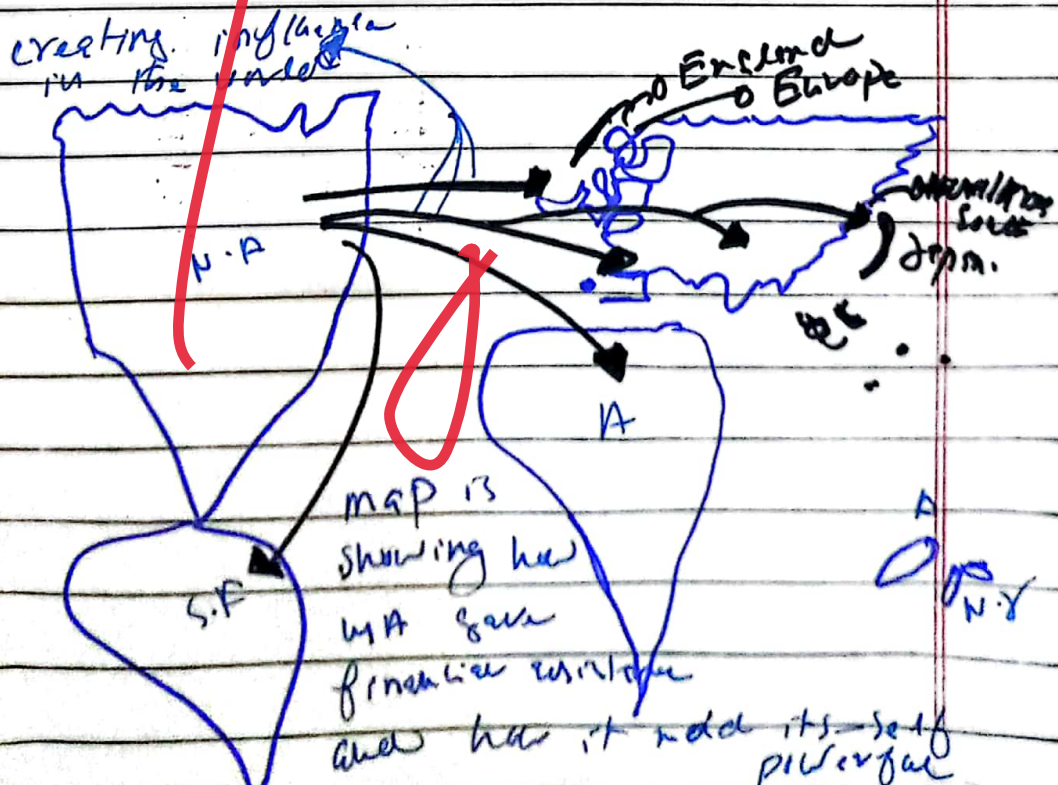 creating influence
in the world
England
Europe
N.A
Japan.
A
map is
showing how
USA gave
financial assistance
and how it made its-self
powerful
A
N.Z